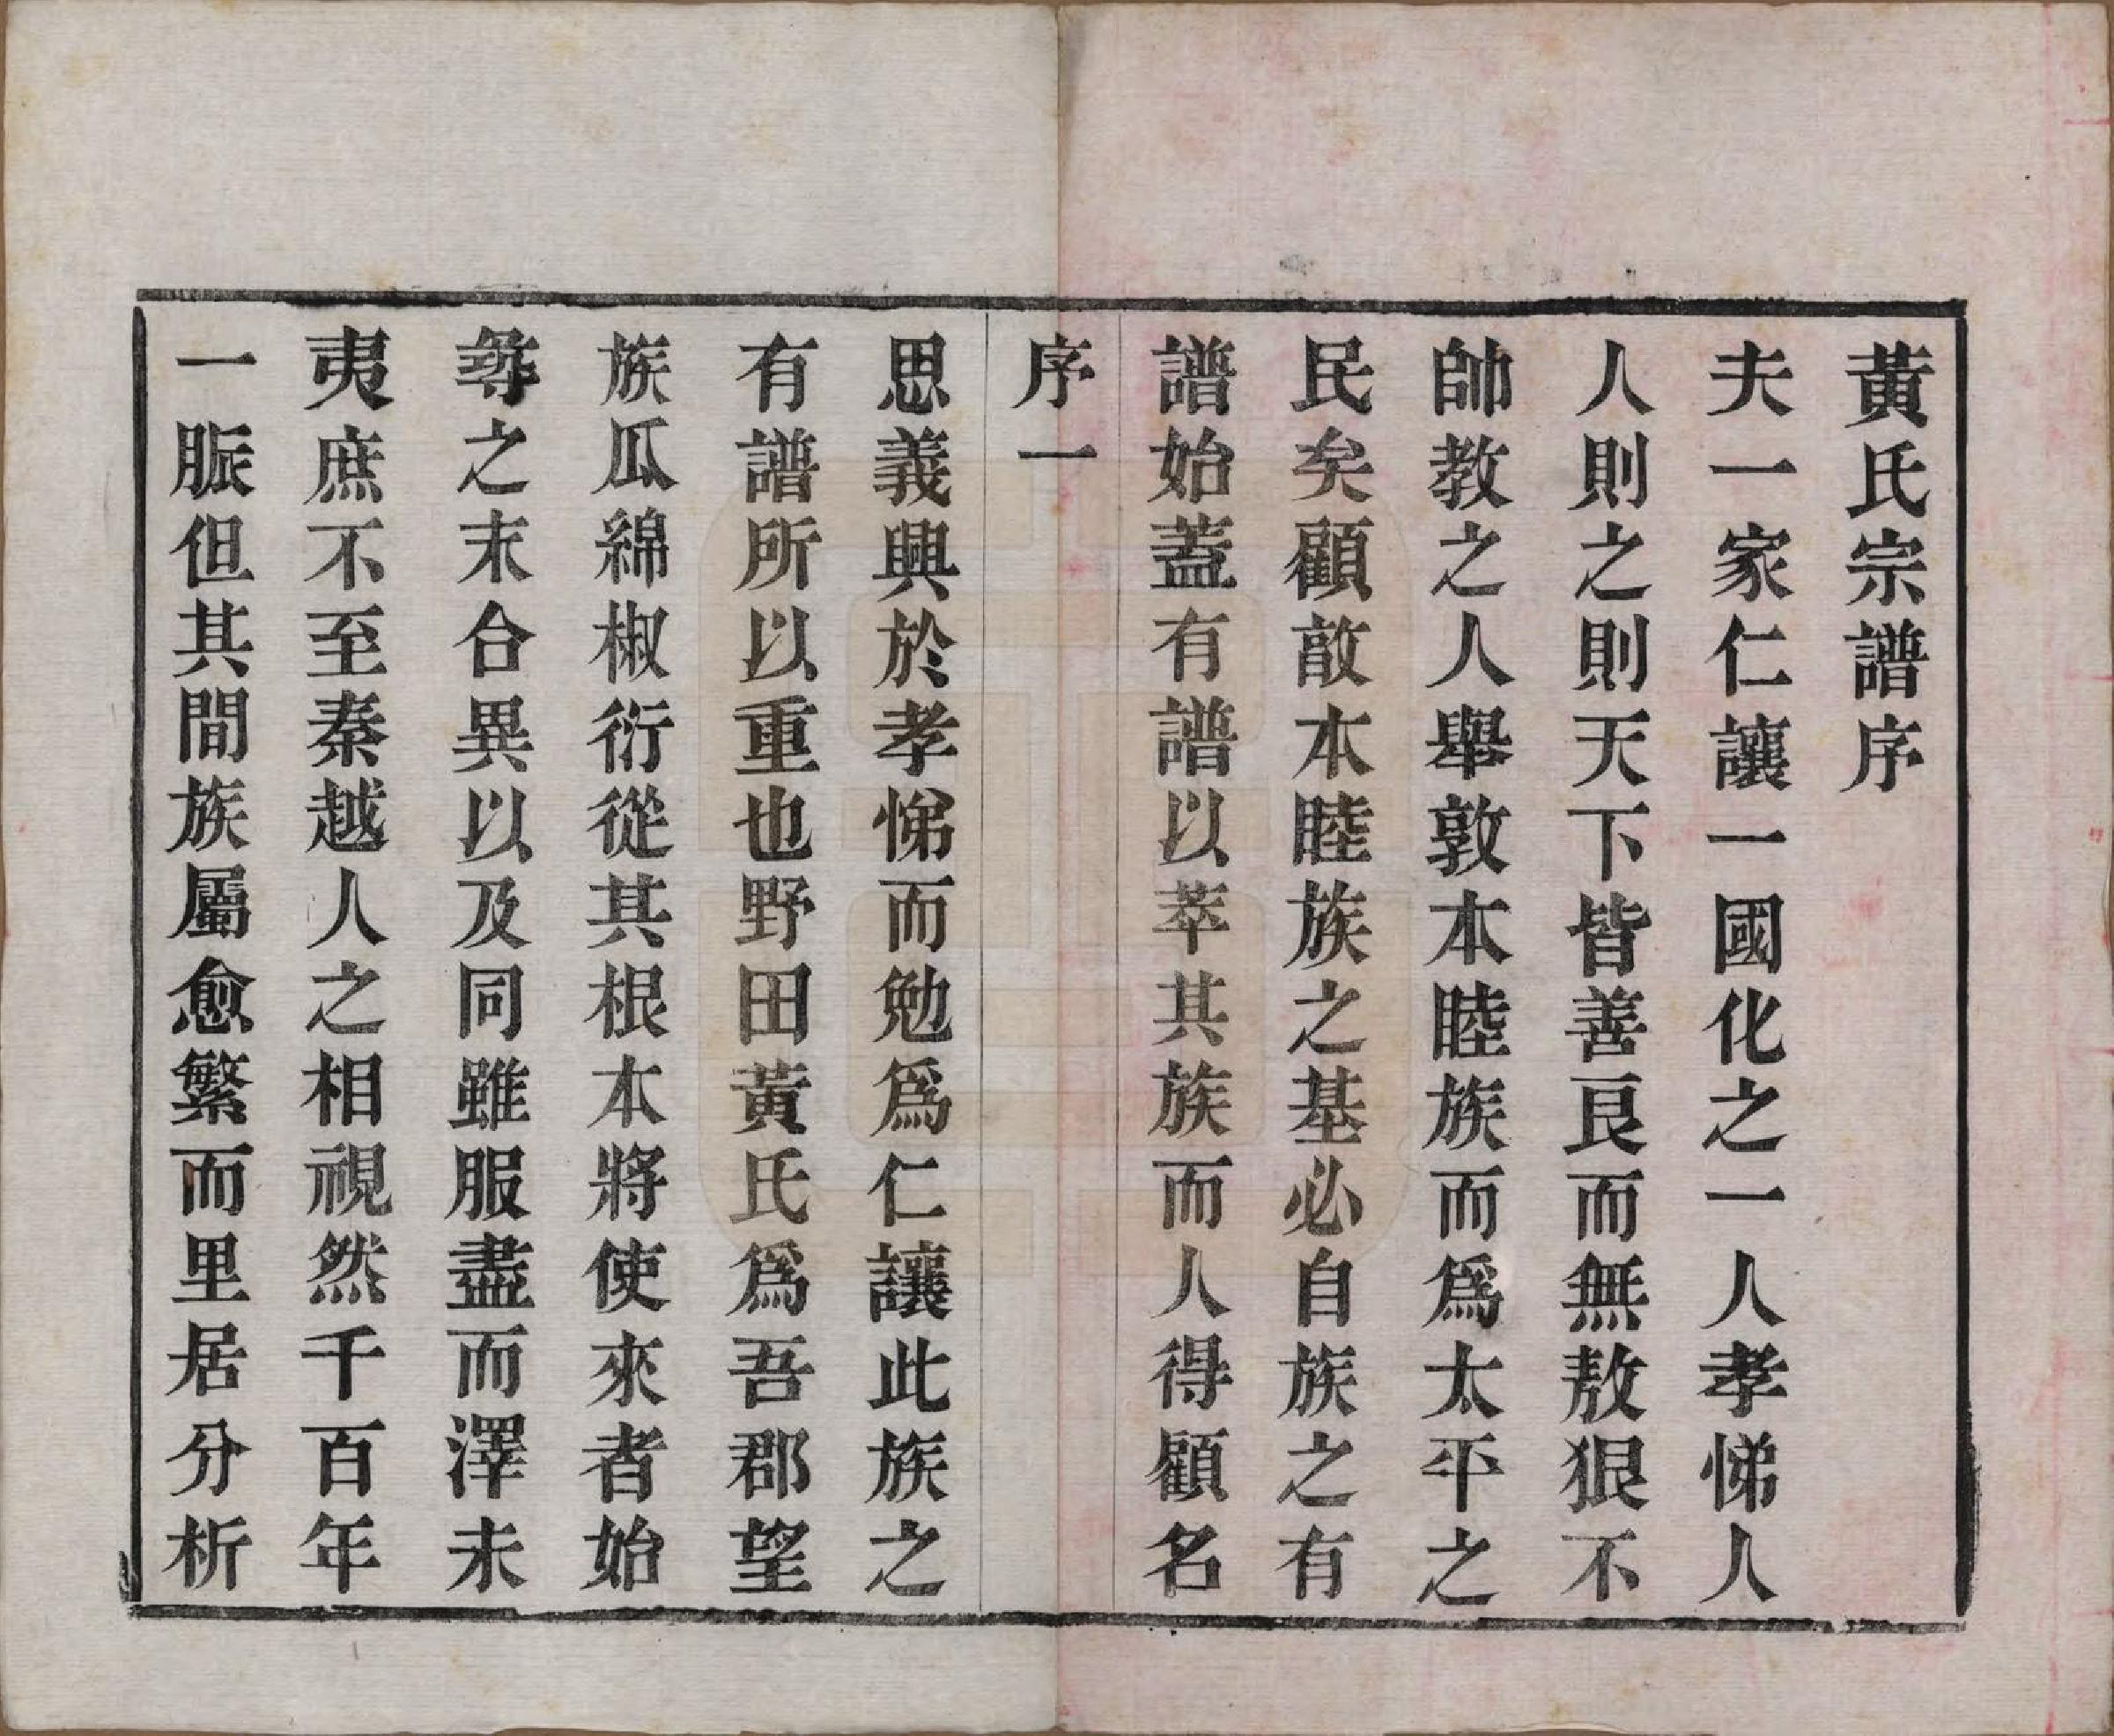 黃氏宗譜序
夫一家仁讓一國化之一人孝悌人
人則之則天下皆善良而無敖狠不
帥教之人舉敦本睦族而爲太平之
民矣顧敦本睦族之基必自族之有
譜始蓋有譜以萃其族而人得顧名
序一
思義興於孝悌而勉爲仁讓此族之
有譜所以重也野田黃氏爲吾郡望
族瓜綿椒衍從其根本將使來者始
彝之末合異以及同雖服盡而澤未
夷庶不至秦越人之相視然千百年
一脈但其間族屬愈繁而里居分析